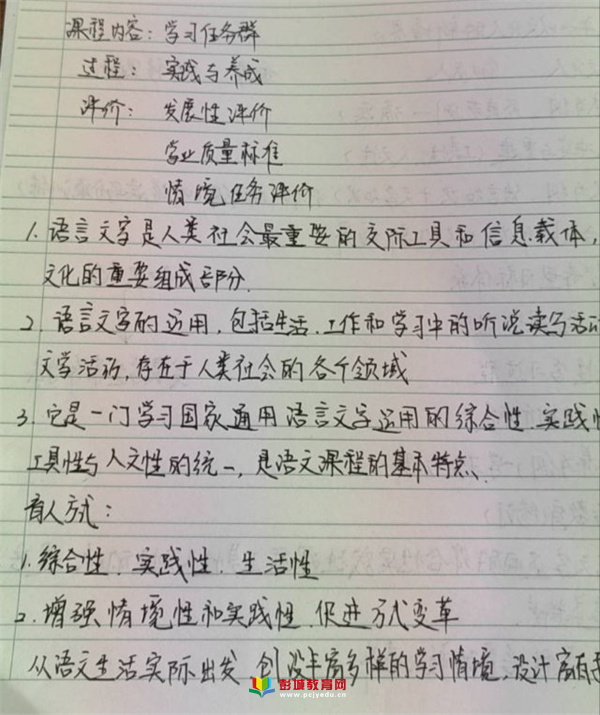 课程内容：学习任务群
过程：实践与养成
评价：发展性评价
学业质量标准
情境任务评价
1. 语言文字是人类社会最重要的交际工具和信息载体，
文化的重要组成部分.
2. 语言文字的运用，包括生活、工作和学习中的听说读写活动
文学活动，存在于人类社会的各个领域
3. 它是一门学习国家通用语言文字运用的综合性、实践性
工具性与人文性的统一，是语文课程的基本特点.
育人方式：
1. 综合性、实践性、生活性
2. 增强情境性和实践性，促进方式变革
从语文生活实际出发，创设丰富多样的学习情境，设计富有
彭城教育网
www.pcjyedu.cn